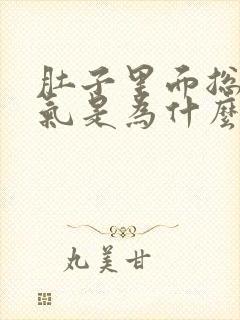 肚子里而
氣是為什麼
丸美甘